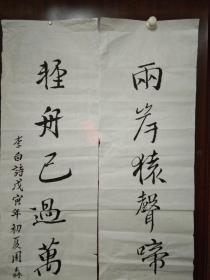 兩岸猿聲啼
輕舟已過萬
李白詩戊寅年初夏周森